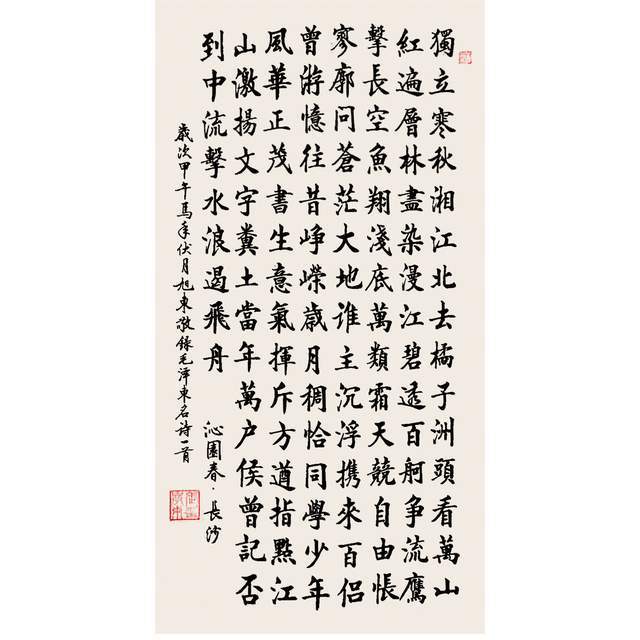 獨立寒秋湘江北去橘子洲頭看萬山
紅遍層林盡染漫江碧透百舸争流鷹
擊長空魚翔淺底萬類霜天競自由悵
寥廓问蒼茫大地谁主沉浮携來百侣
曾游憶往昔崢嶸歲月稠恰同學少年
風華正茂書生意氣揮斥方遒指點江
山激揚文字糞土當年萬户侯曾記否
到中流擊水浪遏飛舟 沁園春·長沙
歲次甲午馬年伏月旭東敬錄毛澤東名詩一首